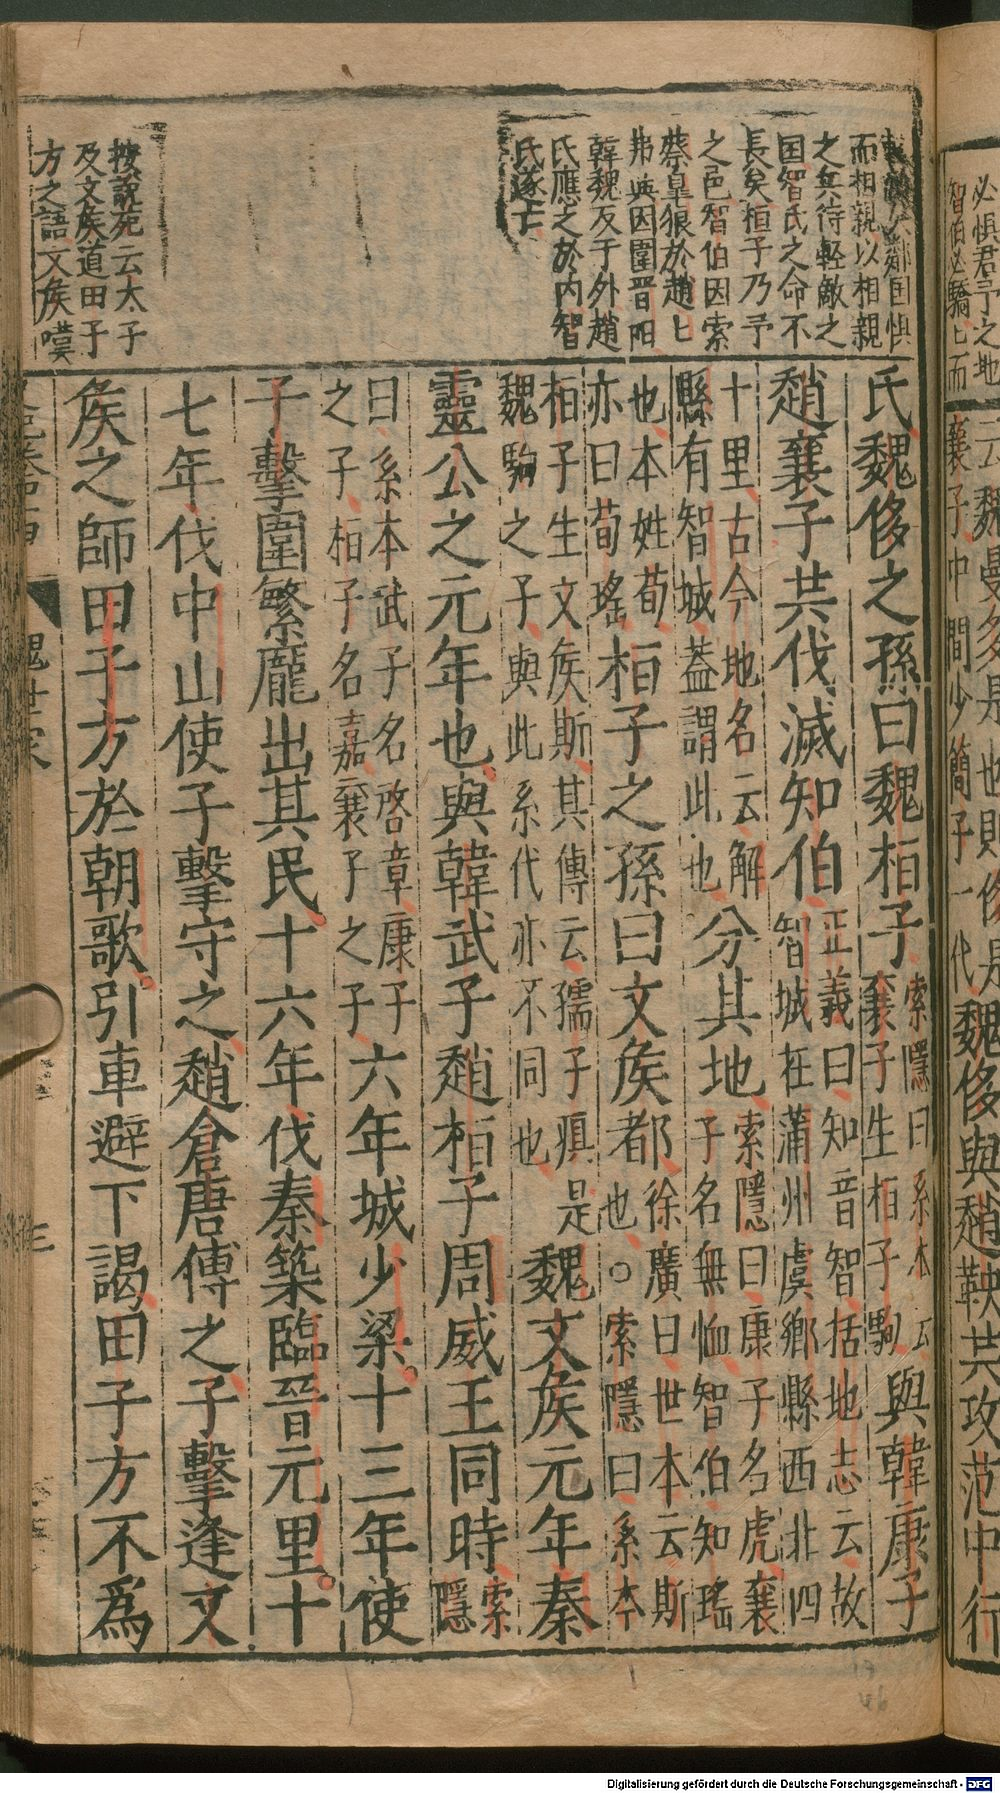 必惧君予之地
智伯必驕匕而
云魏曼多是也則侈是魏侈與趙鞅共攻范中行
襄子中間少簡子一代
大鄰国惧
而相親以相親
之兵待輕敵之
国智氏之命不
長矣桓子乃予
之邑智伯因索
蔡皐狼於趙匕
弗與因圍晋阳
韓魏反于外趙
氏應之於内智
氏遂亡
按說苑云太子
及文侯道田子
方之語文侯嘆
氏魏侈之孫曰魏桓子索隱曰系本云
襄子生桓子駒與韓康子
趙襄子共伐滅知伯正義曰知音智括地志云故
智城在蒲州虞鄉縣西北四
十里古今地名云解
縣有智城蓋謂此也分其地索隱曰康子名虎襄
子名無恤智伯知瑤
也本姓荀
亦曰荀瑤桓子之孫曰文侯都徐廣曰世本云斯
也○索隱曰系本
桓子生文侯斯其傳云孺子𤸫是
魏駒之子與此系代亦不同也魏文侯元年秦
靈公之元年也與韓武子趙桓子周威王同時索
隱
曰系本武子名啓章康子
之子桓子名嘉襄子之子六年城少梁十三年使
子擊圍繁龐出其民十六年伐秦築臨晉元里十
七年伐中山使子擊守之趙倉唐傅之子擊逢文
侯之師田子方於朝歌引車避下謁田子方不爲
魏世家
三
46
Digitalisierung gefördert durch die Deutsche Forschungsgemeinschaft - DFG